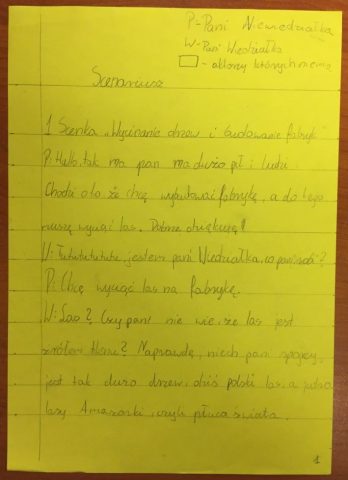 P-Pani Niewiedziałka
W-Pani Wiedziałka
- aktorzy których nie ma
Scenariusz
1 Scenka "Wycinanie drzew i budowanie fabryk"
P: Hello, tak ma pan ma dużo pił i ludzi
Chodzi oto że chcę wybudować fabrykę, a do tego
muszę wyciąć las. Dobrze dziękuję!
W: Tutututututu, jestem pani Wiedziałka, co pani robi?
P: Chcę wyciąć las na fabrykę.
W: Las? Czy pani nie wie, że las jest
źródłem tlenu? Naprawdę, niech pani spojrzy,
jest tak dużo drzew, dziś polski las, a jutro
lasy Amazonki, czyli płuca świata.
1